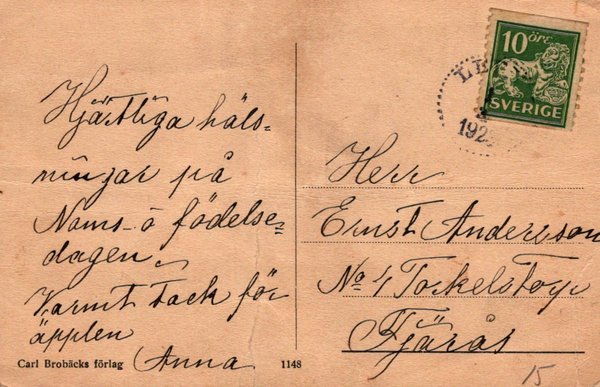 Hjärtliga häls-
ningar på
Nams- o födelse-
dagen.
Varmt Tack för
äpplen
Anna
Carl Brobäcks förlag
1148
10 öre
SVERIGE
192
Herr
Ernst Andersson
No 4 Torkelstorp
Fjärås
15